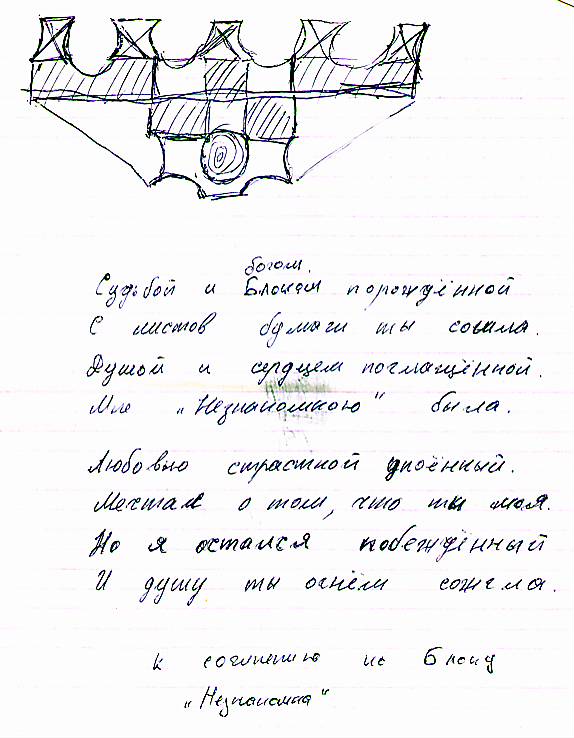 богом.
Судьбой и Блоком порождённой
С листов бумаги ты сошла.
Душой и сердцем поглащённой.
Мне „Незнакомкою" была.
Любовью страстной упоённый.
Мечтал о том, что ты моя.
Но я остался побеждённый
И душу ты огнём сожгла.
к сочинению по Блоку
„Незнакомка"